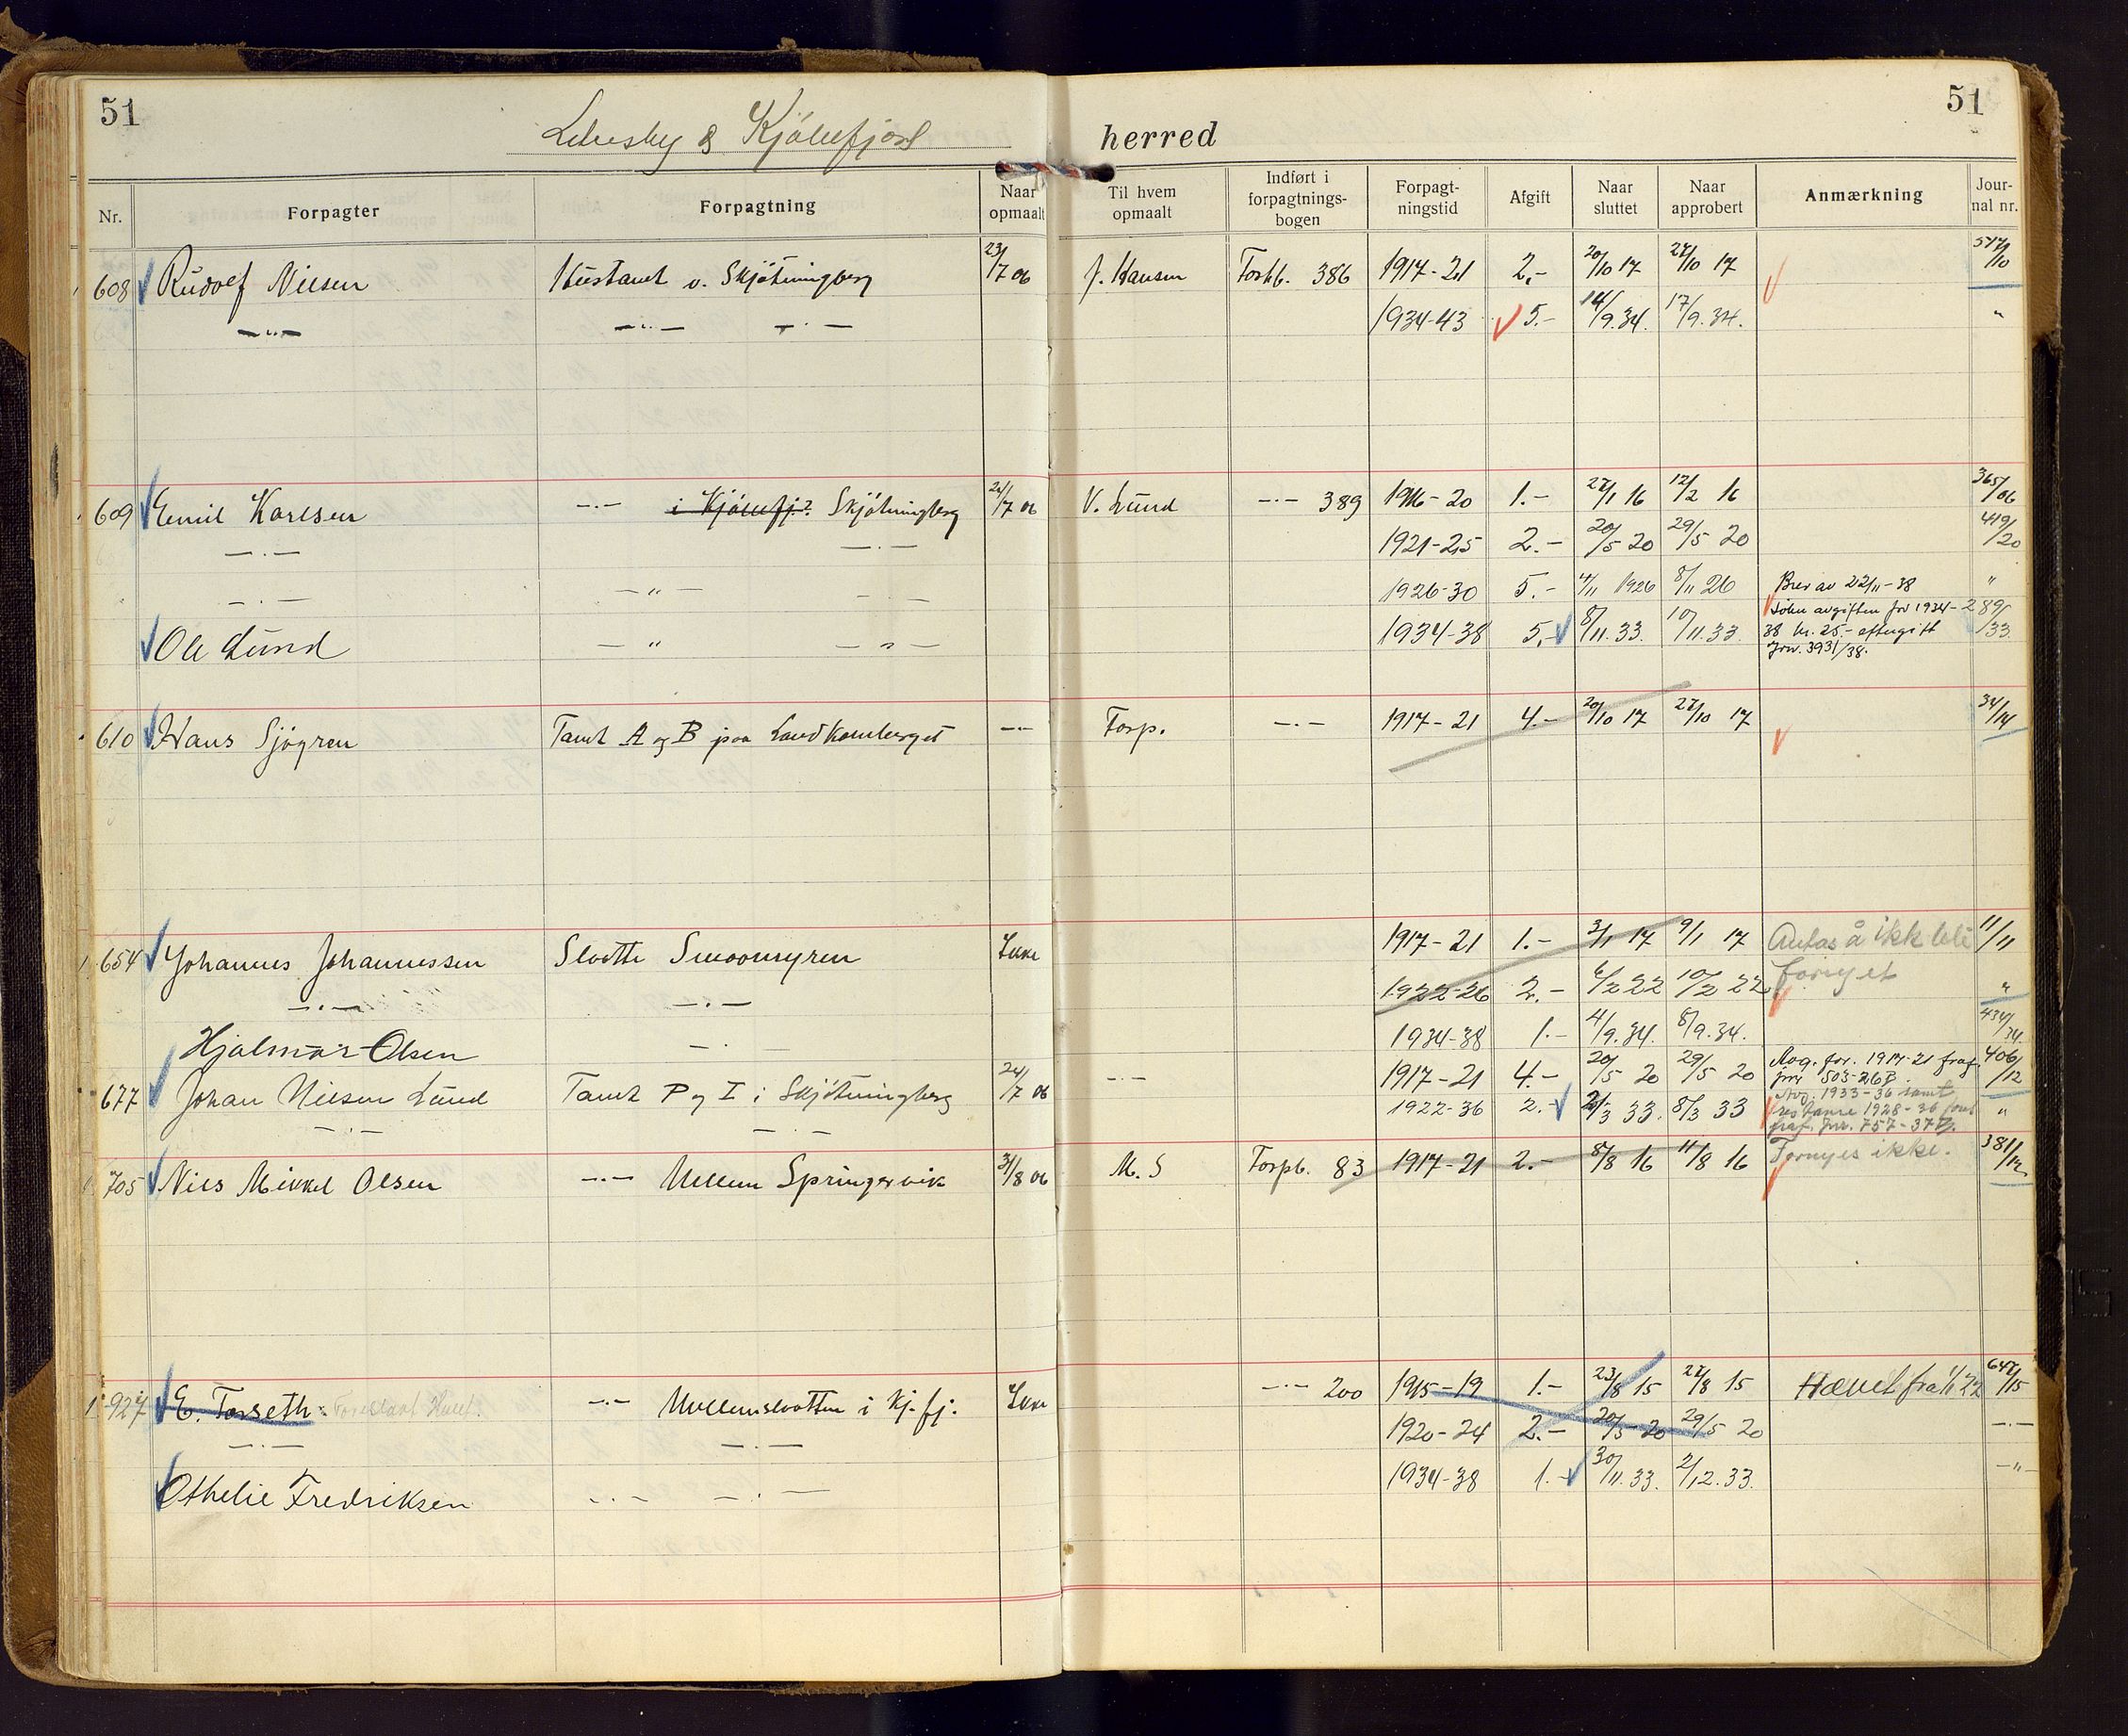 51
51
Lebesby & Kjöllefjord herred
Nr. Forpagter Forpagtning Naar opmaalt Til hvem opmaalt Indført i forpagtnings-bogen Forpagt-ningstid Afgift Naar sluttet Naar approbert Anmærkning Jour-nal nr.
608 Rudolf Nilsen Hustomt v. Skjötningberg 23/7 06 J. Hansen Forpb. 386 1917-21 2.- 20/10 17 27/10 17
—"— —"— —·— 1934-43 5.- 14/9.34. 17/9.34. "
609 Emil Karlsen —·— i Kjöllefj.? Skjötningberg 24/7 06 V. Lund —·— 389 1916-20 1.- 27/1 16 12/2 16 365/06
—·— —·— 1921-25 2.- 20/5 20 29/5 20 419/20
—·— —"— —·— 1926-30 5.- 4/11 1926 8/11 26 Brev av 22/11-38 "
Ole Lund —"— —"— 1934-38 5.- 8/11.33. 10/11.33. avgiften for 1934-38 kr. 25.- eftergitt Jnr. 3931/38. 289/33
610 Hans Sjögren Tomt A og B paa Landkomberget —·— Forp. —·— 1917-21 4.- 20/10 17 27/10 17 34/14
654 Johannes Johannessen Slaatte Smaamyren Ikke 1917-21 1.- 3/1 17 9/1 17 Antas å ikk bli 11/11
—·— —·— 1922-26 2.- 6/2 22 10/2 22 fornyet "
Hjalmar Olsen —·— 1934-38 1.- 4/9.34. 8/9.34. 434/34.
677 Johan Nilsen Lund Tomt P og I i Skjötningberg 24/7 06 —·— 1917-21 4.- 20/5 20 29/5 20 Avg. for 1917-21 fraf. jnr 503-26B. 406/12
—·— —·— 1922-36 2.- 2/3 33. 8/3 33 Avg. 1933-36 samt restanse 1928-36 fraf. Jnr. 757-37B. "
705 Nils Mikkel Olsen —·— Mellem Springervik 31/8 06 M. S Forpb. 83 1917-21 2.- 8/8 16 11/8 16 Fornyes ikke. 381/12
927 E. Torseth Foreslaat Hævet. —·— Mellemslaatten i Kj.fj. Ikke —·— 200 1915-19 1.- 23/8 15 27/8 15 Hævet fra 1/1 22 647/15
—·— —·— 1920-24 2.- 20/5 20 29/5 20 —·—
Othelie Fredriksen —·— —·— 1934-38 1.- 30/11.33. 2/12.33. —"—